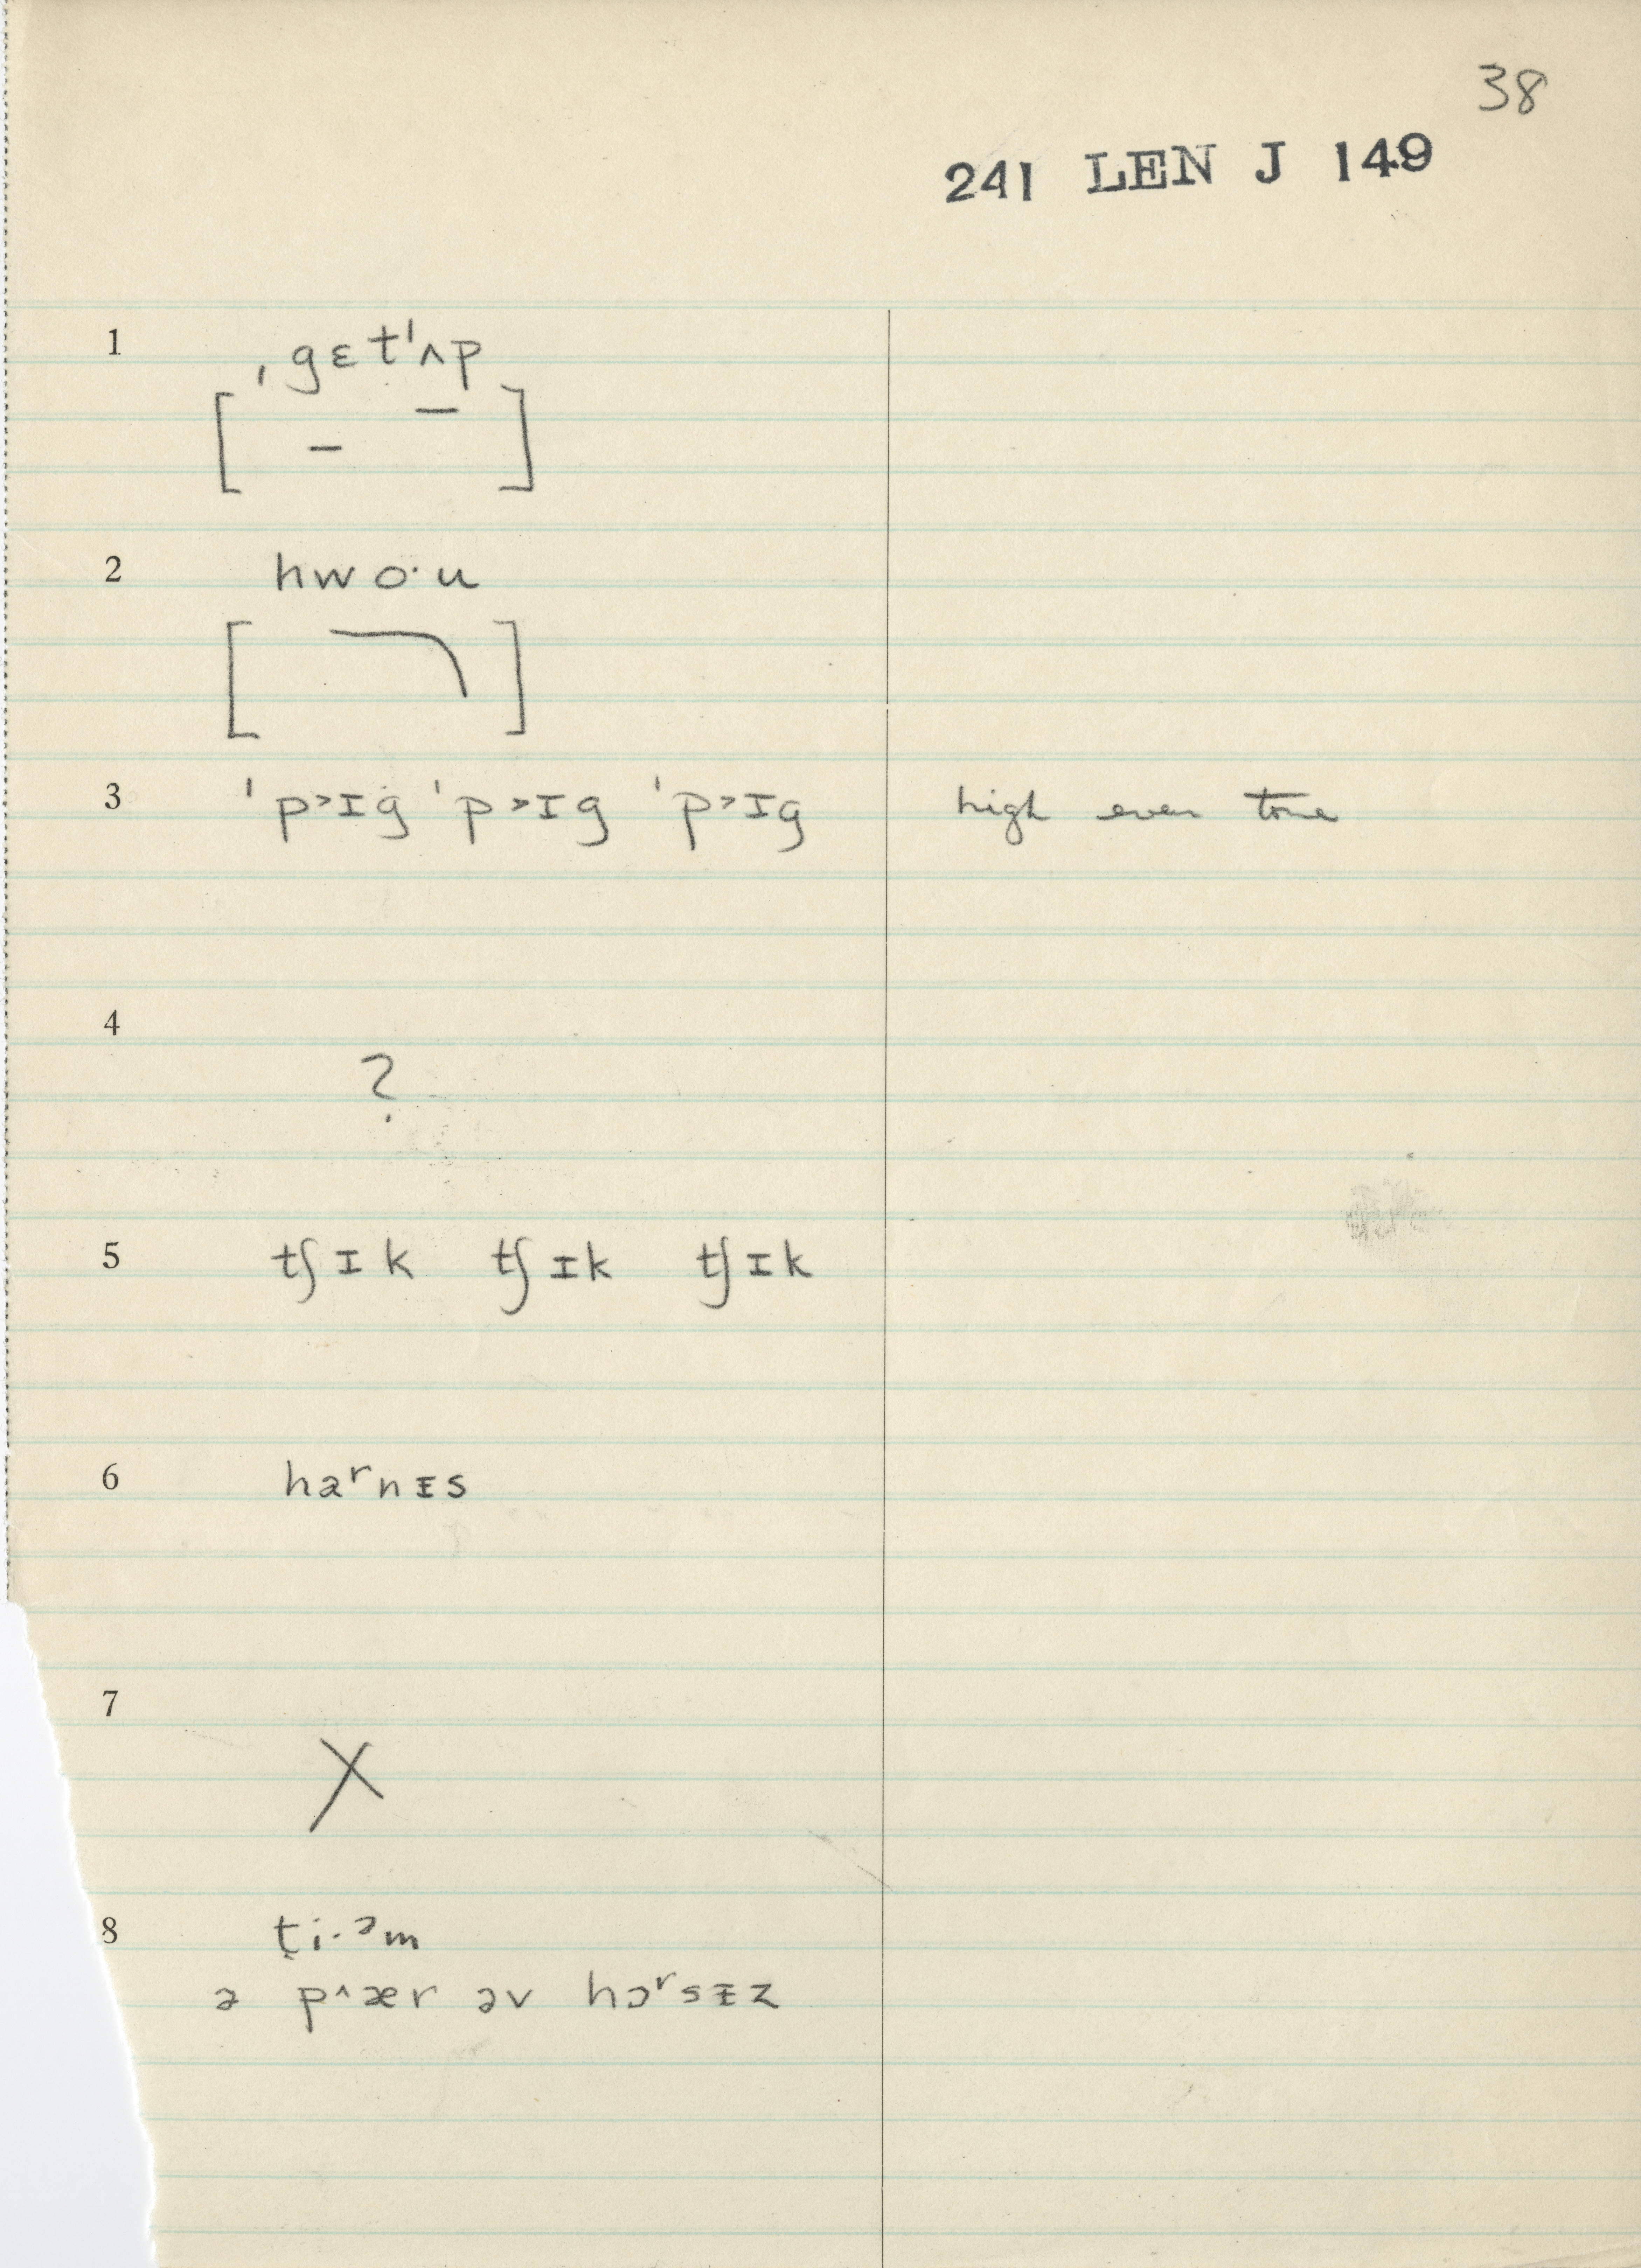 38
241 LEN J 149
1 ˌgɛtˈʌp
[ – – ]
2 hwo·u
[ ]
3 ˈp˃ɪg ˈp˃ɪg ˈp˃ɪg high even tone
4
?
5 tʃɪk tʃɪk tʃɪk
6 haʳnɪs
7
X
8 t̬i·ᵊm
ə p^ær əv hɔʳsɪz